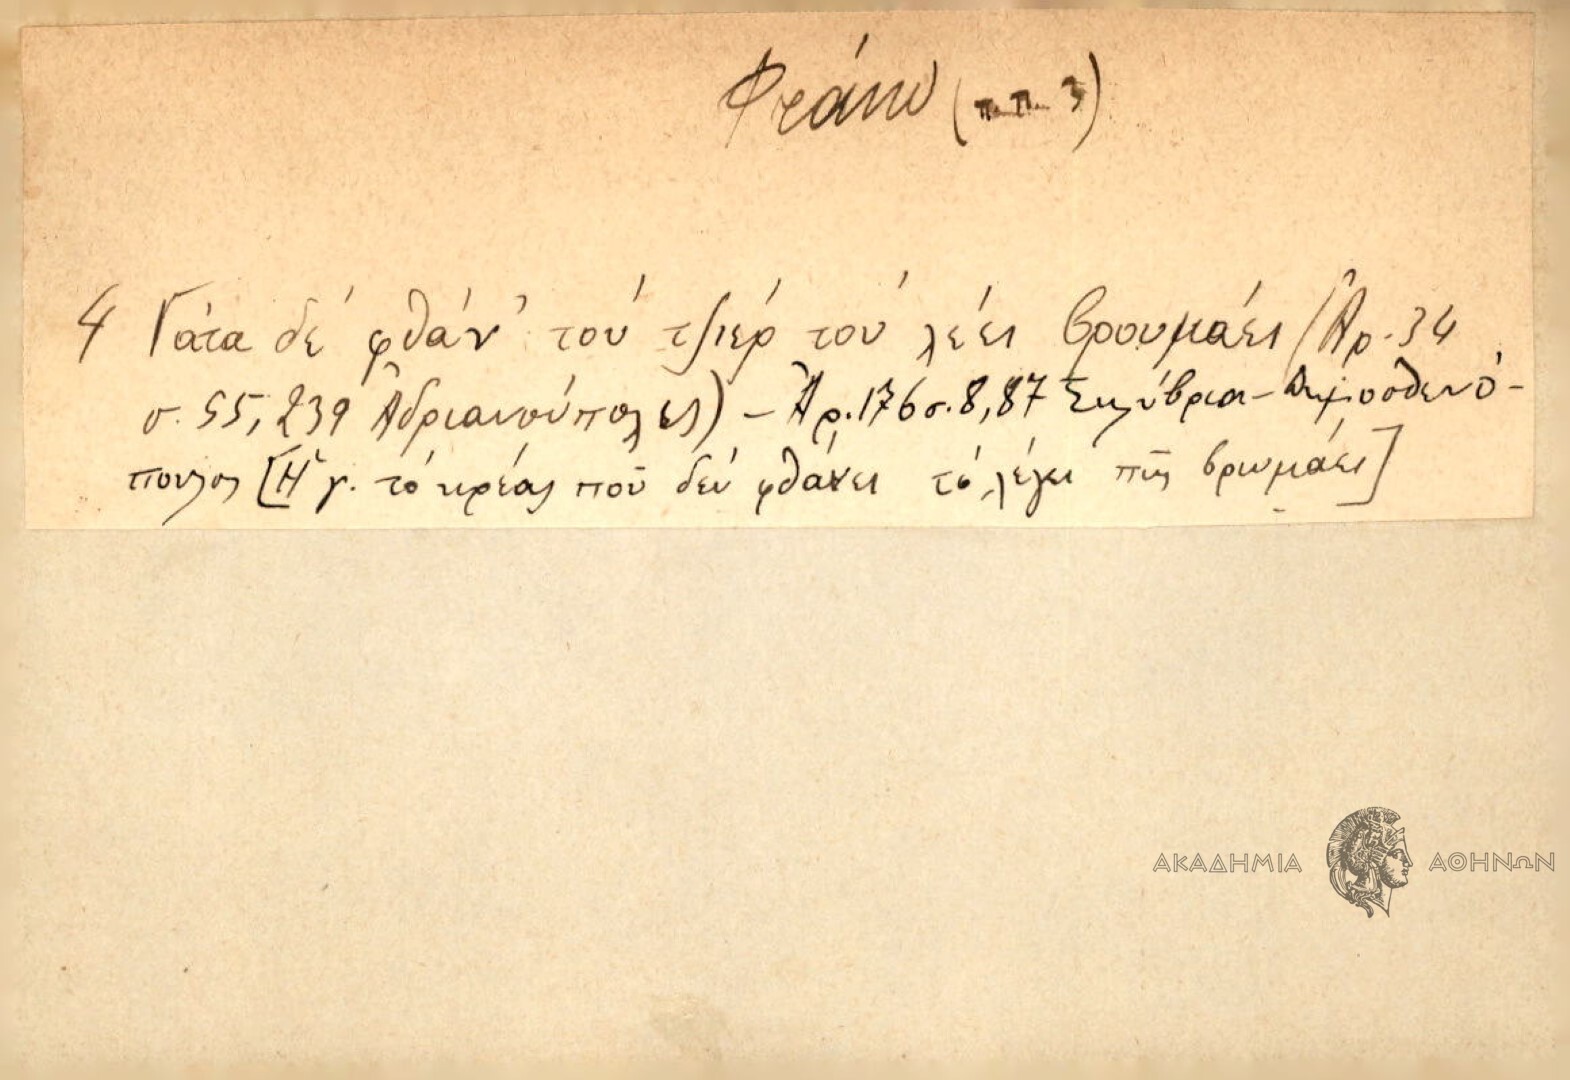 Φτάνω (π.π. 3)
4 Γάτα δέ φθάν' τού τζιέρ τού λέει βρουμάει (Ἀρ. 34
σ. 55, 239 Ἀδριανούπολις) – Ἀρ. 176 σ. 8, 87 Σηλύβρια – Δημοσθενό-
πουλος [Ἡ γ. τό κρέας πού δέν φθάνει τό λέγει πῶς βρωμάει]
ΑΚΑΔΗΜΙΑ ΑΘΗΝΩΝ